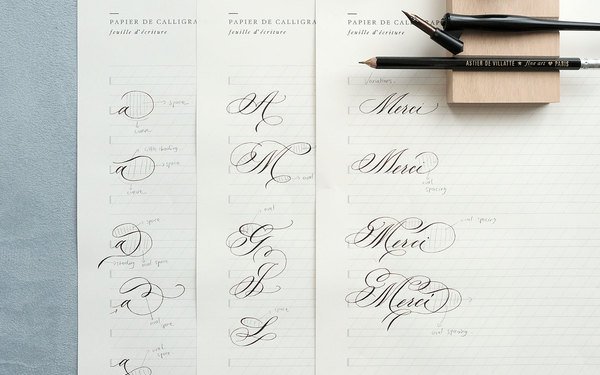 PAPIER DE CALLIGRA
feuille d'écriture
a
space
curve
a
little shading
space
curve
a
space
shading
oval space
a
oval
space
a
oval
space
PAPIER DE CALLIGRA
feuille d'écriture
A
M
oval
oval
G
I
space
S
PAPIER DE CALLIGRAPHIE
feuille d'écriture
ASTIER DE VILLATTE ★ fine art ♥ PARIS
Variations.
Merci
Merci
oval
spacing
Merci
oval spacing
Merci
oval spacing